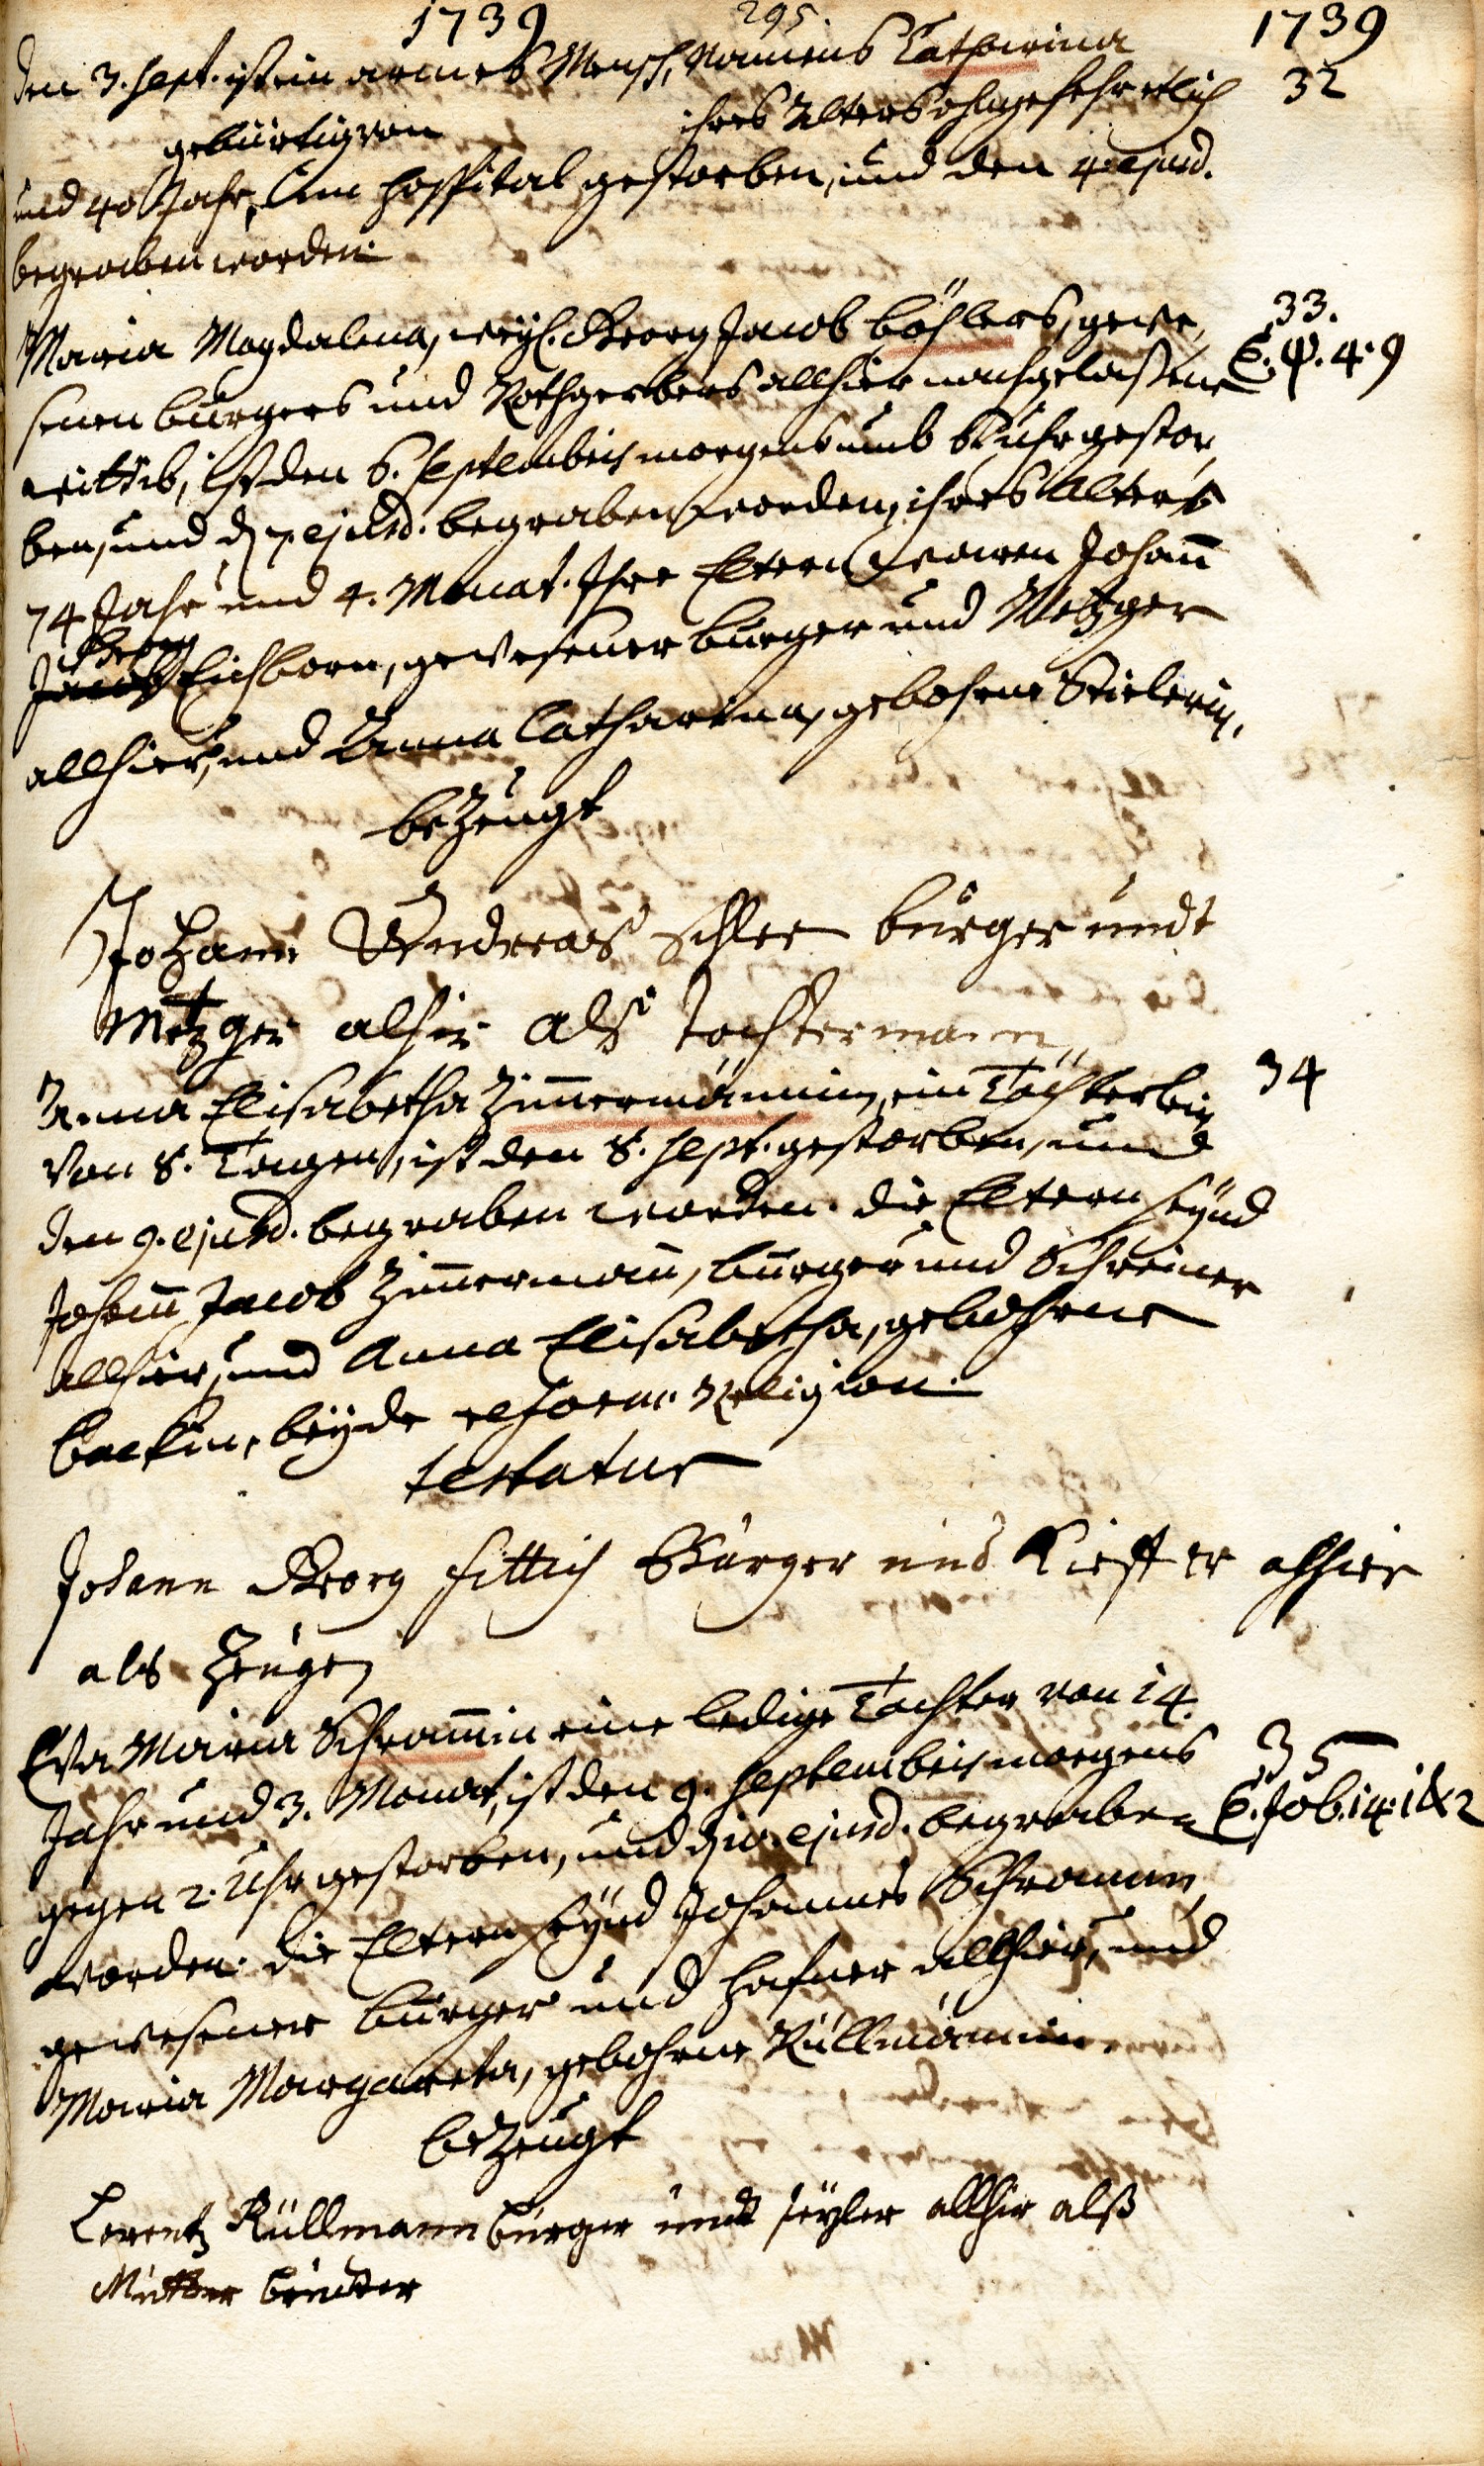 1739 295. 1739
den 3. Sept. ist ein armes Mensch, Namens Catharina 32
gebürtig von ihres Alters ohngefehr etlich
und 40 Jahr, im Hospital gestorben, und den 4. ejusd.
begraben worden.
Maria Magdalena, weyl. Georg Jacob Böhlers, gewe, 33.
senen burgers und Rothgerbers allhier nachgelaßene E. ψ. 4. 9
wittib, ist den 6. Septembris morgens umb 6 uhr gestor,
ben, und d. 7. ejusd. begraben worden, ihres Alters
74 Jahr und 4. Monat. Ihre Eltern waren Johann̅
Georg
Jacob Eichborn, gewesener burger und Metzger
allhier, und Anna Catharina, gebohrne Stielerin.
bezeugt
Johann Andreas Schlee burger undt
Metzger alhir als Tochtermann
Anna Elisabetha Zim̅ermännin, ein Töchterlein 34
von 8. Tagen, ist den 8. Sept. gestorben, und
den 9. ejusd. begraben worden. die Eltern seynd
Johan̅ Jacob Zim̅erman̅, burger und Schreiner
allhier, und Anna Elisabetha, gebohrne
Backin, beyde reform. Religion.
testatur
Johann Georg Fittich Bürger und Kieffer alhier
als Zeugen
Eva Maria Schram̅in eine ledige Tochter von 14.
Jahr und 3. Monat, ist den 9. Septembris morgens 35
gegen 2. Uhr gestorben, und d. 10. ejusd. begraben E. Job. 14. 1 & 2
worden. die Eltern seynd Johannes Schramm,
gewesener burger und Hafner allhier, und
Maria Margareta, gebohrne Rüllmännin.
bezeugt
Lorentz Rüllmann burger undt seyler allhir alß
Mutter bruder